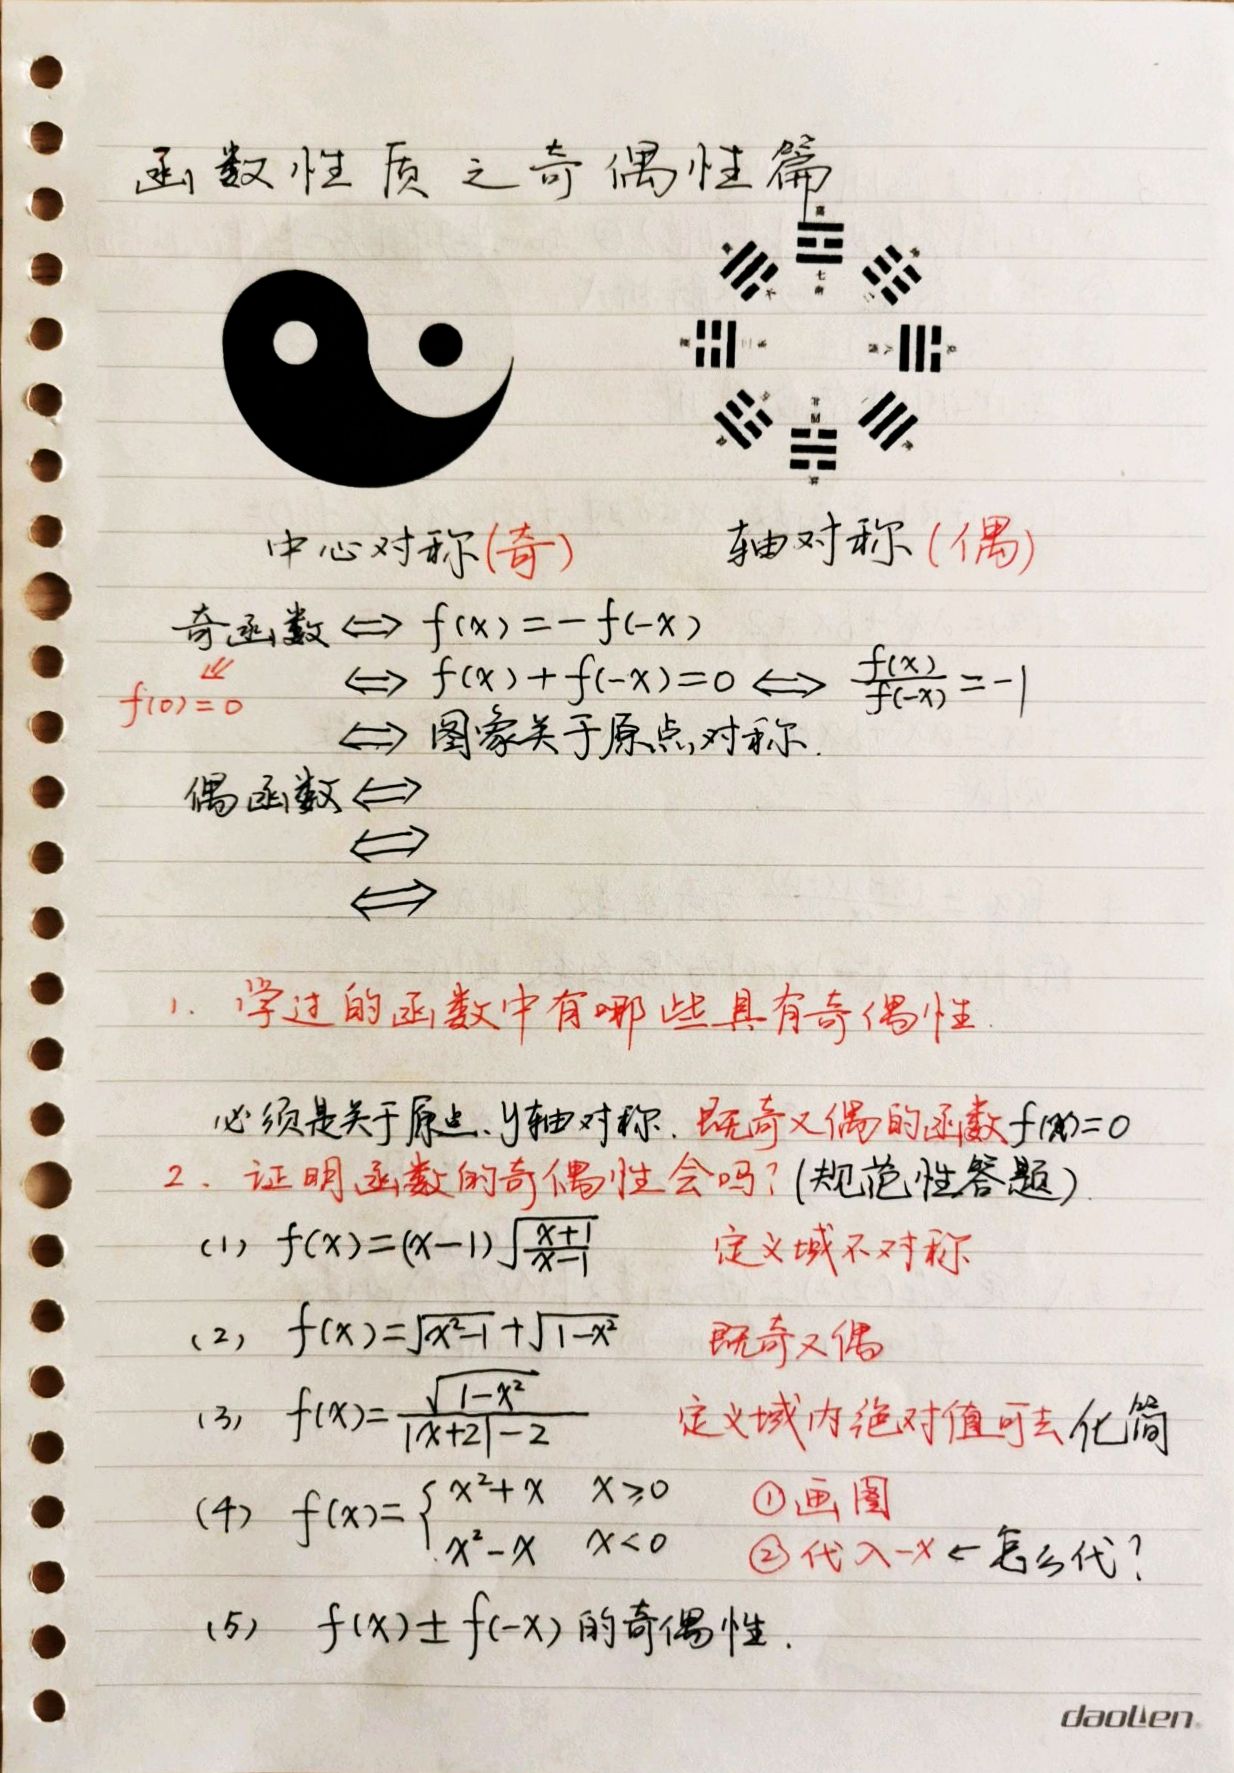 函数性质之奇偶性篇
中心对称(奇)
轴对称(偶)
奇函数 ⇔ f(x)=-f(-x)
f(0)=0
⇔ f(x)+f(-x)=0 ⇔ f(x)/f(-x)=-1
⇔ 图象关于原点对称.
偶函数 ⇔
⇔
⇔
1. 学过的函数中有哪些具有奇偶性.
必须是关于原点、y轴对称. 既奇又偶的函数f(x)=0
2. 证明函数的奇偶性会吗?(规范性答题).
(1) f(x)=(x-1)√((x+1)/(x-1)) 定义域不对称
(2) f(x)=√(x²-1)+√(1-x²) 既奇又偶
(3) f(x)=√(1-x²)/(|x+2|-2) 定义域内绝对值可去 化简
(4) f(x)={x²+x x≥0 ①画图
x²-x x<0 ②代入-x ← 怎么代?
(5) f(x)±f(-x)的奇偶性.
daolien